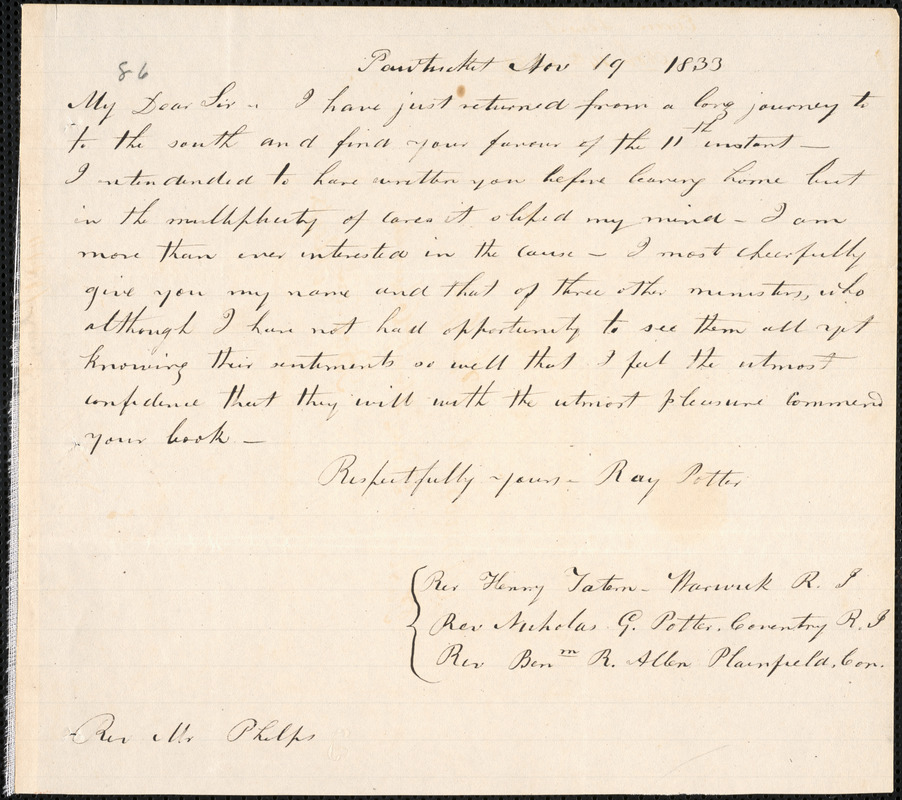 Pawtucket Nov 19 1833
86
My Dear Sir - I have just returned from a long journey to
to the south and find your favour of the 11th instant —
I intendended to have written you before leaving home but
in the multiplicity of cares it sliped my mind - I am
more than ever interested in the cause - I most cheerfully
give you my name and that of three other ministers, who
although I have not had opportunity to see them all yet
knowing their sentiments so well that I feel the utmost
confidence that they will with the utmost pleasure commend
your book —
Respectfully yours - Ray Potter
Rev Henry Tatem - Warwick R. I
Rev Nicholas G. Potter. Coventry R. I
Rev Benm R. Allen Plainfield, Con.
Rev Mr Phelps